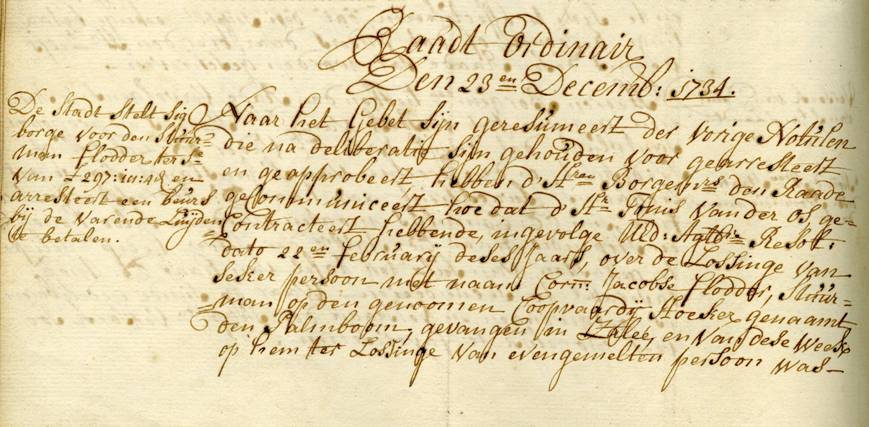 Raadt Ordinair
Den 23en Decemb: 1734.
De Stadt Stelt sig
borge voor den Stuur=
man Flodder ter Sa
van £297:10:48 en
arresteert een beurs
bij de varende Luijden
te betalen.
Naar het Gebet sijn geresumeert de vorige Notulen
die na deliberatie sijn gehouden voor gearresteert
en geapprobeert, hebben d'Hren Borgemrs den Raade
gecommuniceert hoe dat d'Hr Tonis van der os ge=
contracteert hebbende, ingevolge UEd: Agtb: Resol:
dato 22en februarij deses Jaars, over de Lossinge van
seker persoon met naam Corn: Jacobse Flodder, Stuur=
man op den genoomen Coopvaardij Hoeker genaamt
den Palmboom, gevangen in Zalee, en van dese Week
op hem ter Lossinge van evengemelten persoon was=